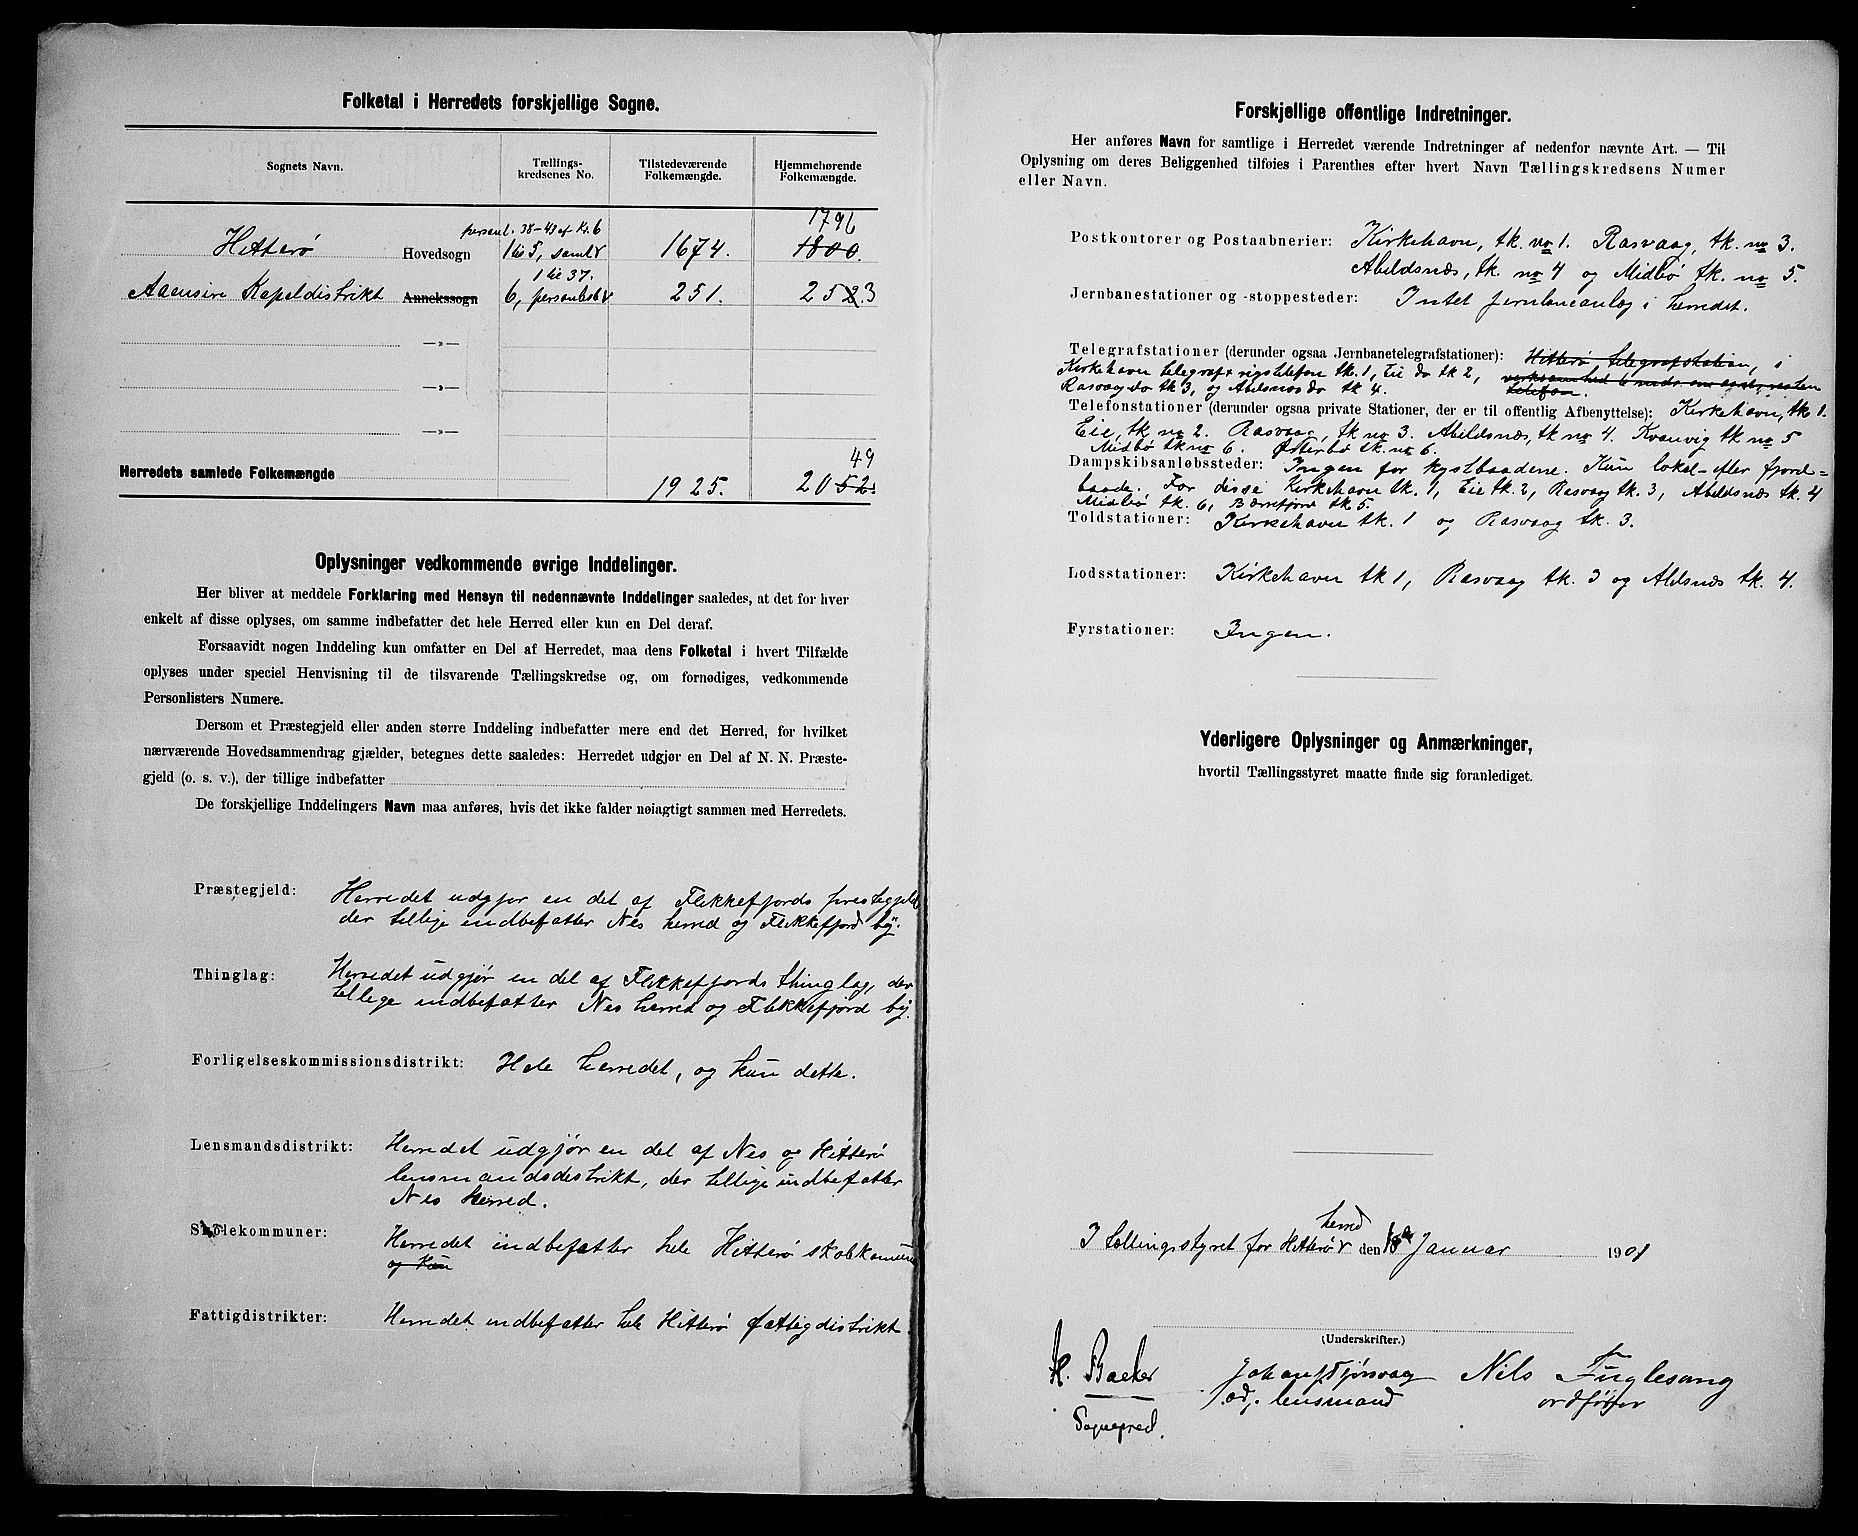 Folketal i Herredets forskjellige Sogne.
Sognets Navn. Tællings-kredsenes No. Tilstedeværende Folkemængde. Hjemmehørende Folkemængde.
personl. 38-43 af Kr. 6 1796
Hitterø Hovedsogn 1 til 5, samt 1674. 1800.
1 til 37.
Aaensire Kapeldistrikt Annekssogn 6, personlister 251. 252.3
—»—
—»—
—»—
49
Herredets samlede Folkemængde 1925. 2052.
Oplysninger vedkommende øvrige Inddelinger.
Her bliver at meddele Forklaring med Hensyn til nedennævnte Inddelinger saaledes, at det for hver
enkelt af disse oplyses, om samme indbefatter det hele Herred eller kun en Del deraf.
Forsaavidt nogen Inddeling kun omfatter en Del af Herredet, maa dens Folketal i hvert Tilfælde
oplyses under speciel Henvisning til de tilsvarende Tællingskredse og, om fornødiges, vedkommende
Personlisters Numere.
Dersom et Præstegjeld eller anden større Inddeling indbefatter mere end det Herred, for hvilket
nærværende Hovedsammendrag gjælder, betegnes dette saaledes: Herredet udgjør en Del af N. N. Præste-
gjeld (o. s. v.), der tillige indbefatter
De forskjellige Inddelingers Navn maa anføres, hvis det ikke falder nøiagtigt sammen med Herredets.
Præstegjeld: Herredet udgjør en del af Flekkefjords prestegjeld
der tillige indbefatter Nes herred og Flekkefjord by.
Thinglag: Herredet udgjør en del af Flekkefjords thinglag, der
tillige indbefatter Nes herred og Flekkefjord by.
Forligelseskommissionsdistrikt: Hele herredet, og kun dette.
Lensmandsdistrikt: Herredet udgjør en del af Nes og Hitterø
lensmandsdistrikt, der tillige indbefatter
Nes herred.
Skolekommuner: Herredet indbefatter hele Hitterø skolekomune
og kun
Fattigdistrikter: Herredet indbefatter hele Hitterø fattigdistrikt.
Forskjellige offentlige Indretninger.
Her anføres Navn for samtlige i Herredet værende Indretninger af nedenfor nævnte Art. — Til
Oplysning om deres Beliggenhed tilføies i Parenthes efter hvert Navn Tællingskredsens Numer
eller Navn.
Postkontorer og Postaabnerier: Kirkehavn, tk. no 1. Rasvaag, tk. no 3.
Abeldsnæs, tk. no 4 og Midbø tk. no 5.
Jernbanestationer og -stoppesteder: Intet jernbaneanlæg i herredet.
Telegrafstationer (derunder ogsaa Jernbanetelegrafstationer): Hitterø telegrafstation, i
Kirkehavn telegraf & rigstelefon tk. 1, Eie do tk 2, virksomhed 6 mdr. om aaret, resten
Rasvaag do tk 3, og Abelsnes do tk 4. telefon.
Telefonstationer (derunder ogsaa private Stationer, der er til offentlig Afbenyttelse): Kirkehavn, tk 1.
Eie, tk no 2. Rasvaag, tk no 3. Abeldsnæs, tk no 4. Kvanvig tk no 5
Midbø tk no 6. Østerbø tk. no 6.
Dampskibsanløbssteder: Ingen for kystbaadene. Kun lokal- eller fjord-
baade. For disse Kirkehavn tk. 1, Eie tk. 2, Rasvaag tk. 3, Abeldsnæs tk. 4
Midbø tk. 6, Berrefjord tk 5.
Toldstationer: Kirkehavn tk. 1 og Rasvaag tk. 3.
Lodsstationer: Kirkehavn tk 1, Rasvaag tk. 3 og Abelsnæs tk. 4.
Fyrstationer: Ingen.
Yderligere Oplysninger og Anmærkninger,
hvortil Tællingsstyret maatte finde sig foranlediget.
herred
I tællingsstyret for Hitterø den Januar 1901
(Underskrifter.)
H. Backer Johan Tjørsvaag Nils Fuglesang
lensmand ordfører
Sognepræst.